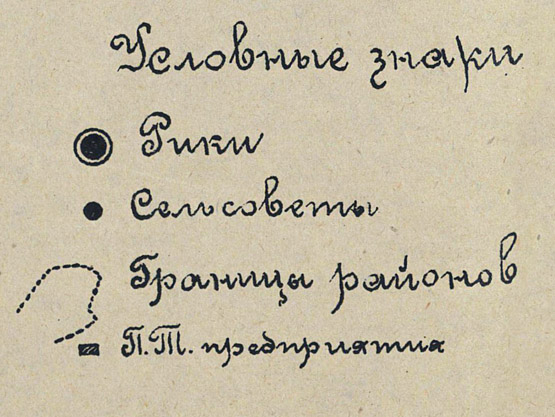 Условные знаки
Рики
Сельсоветы
Границы районов
П.Т. предприятия